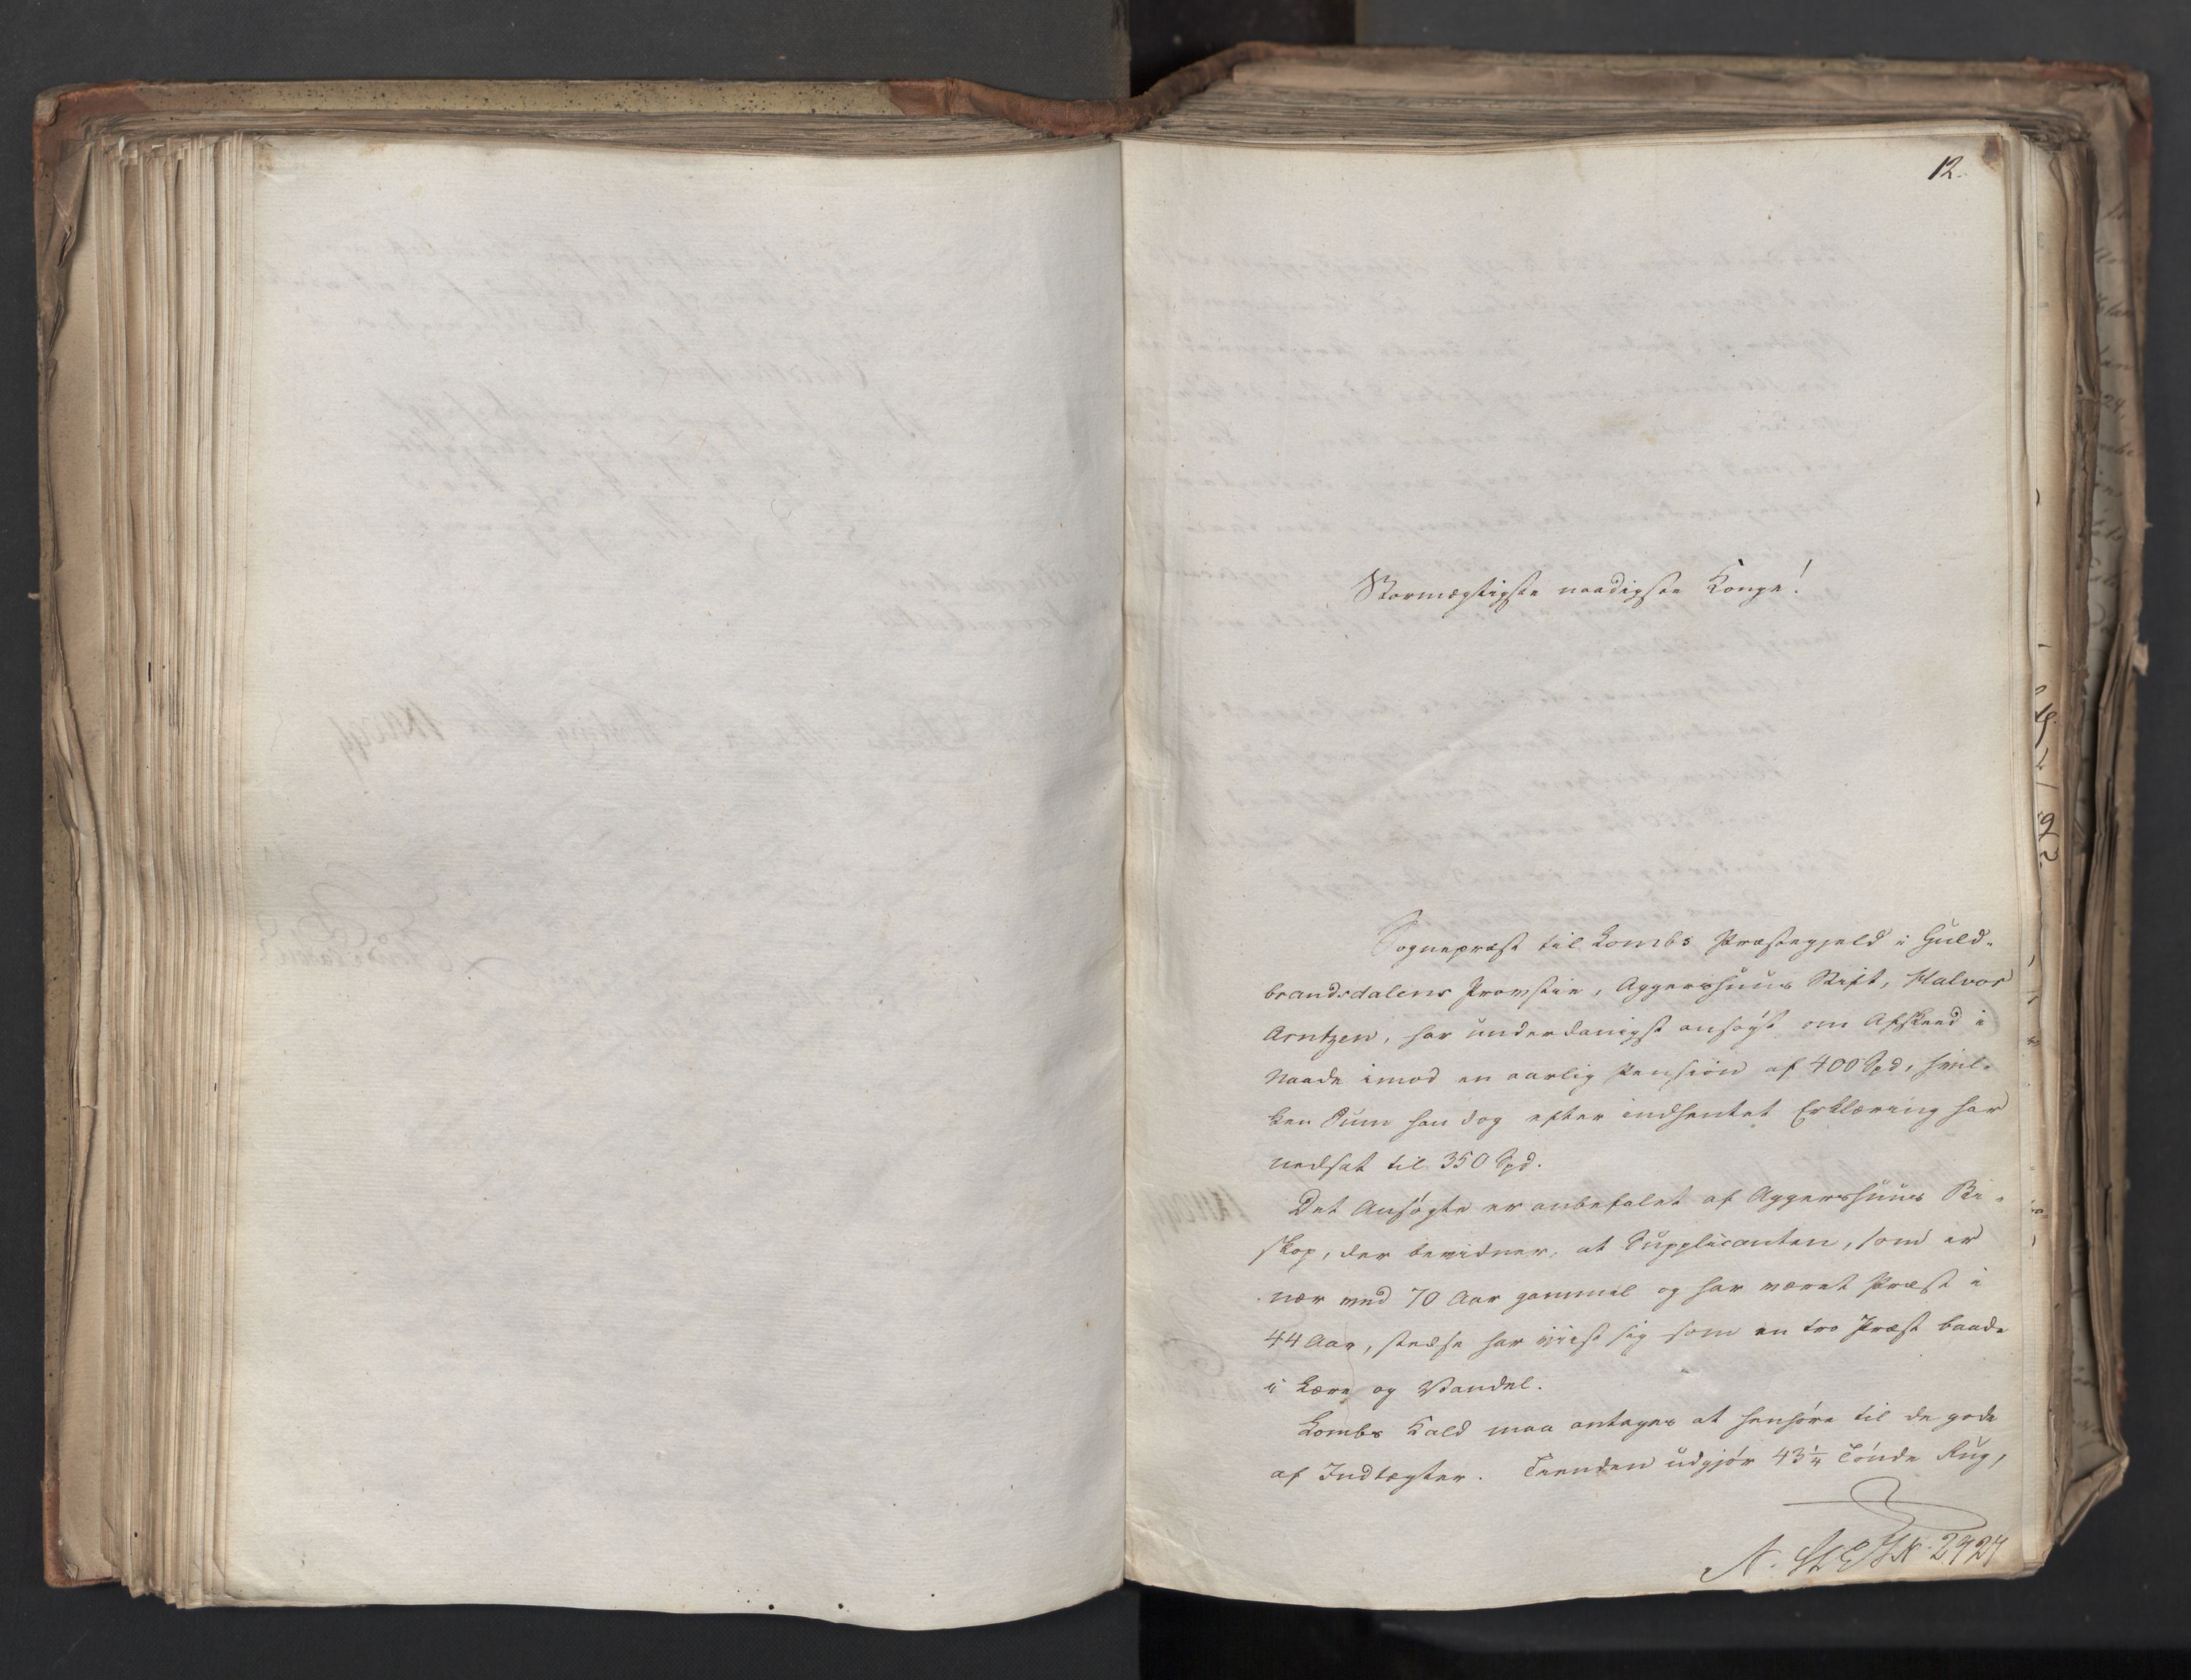 12.
Stormægtigste naadigste Konge!
Sognepræst til Lombs Præstegjeld i Guld-
brandsdalens Provstie, Aggershuus Stift, Halvor
Arntzen, har underdanigst ansøgt om Afskeed i
Naade imod en aarlig Pension af 400 Spd, hvil-
ken Sum han dog efter indhentet Erklæring har
nedsat til 350 Spd.
Det Ansøgte er anbefalet af Aggershuus Bi-
skop, der bevidner, at Supplicanten, som er
nær ved 70 Aar gammel og har været Præst i
44 Aar, stedse har viist sig som en tro Præst baade
i Lære og Vandel.
Lombs Kald maa antages at henhøre til de gode
af Indtægter. Tienden udgjør 43¼ Tønde Rug,